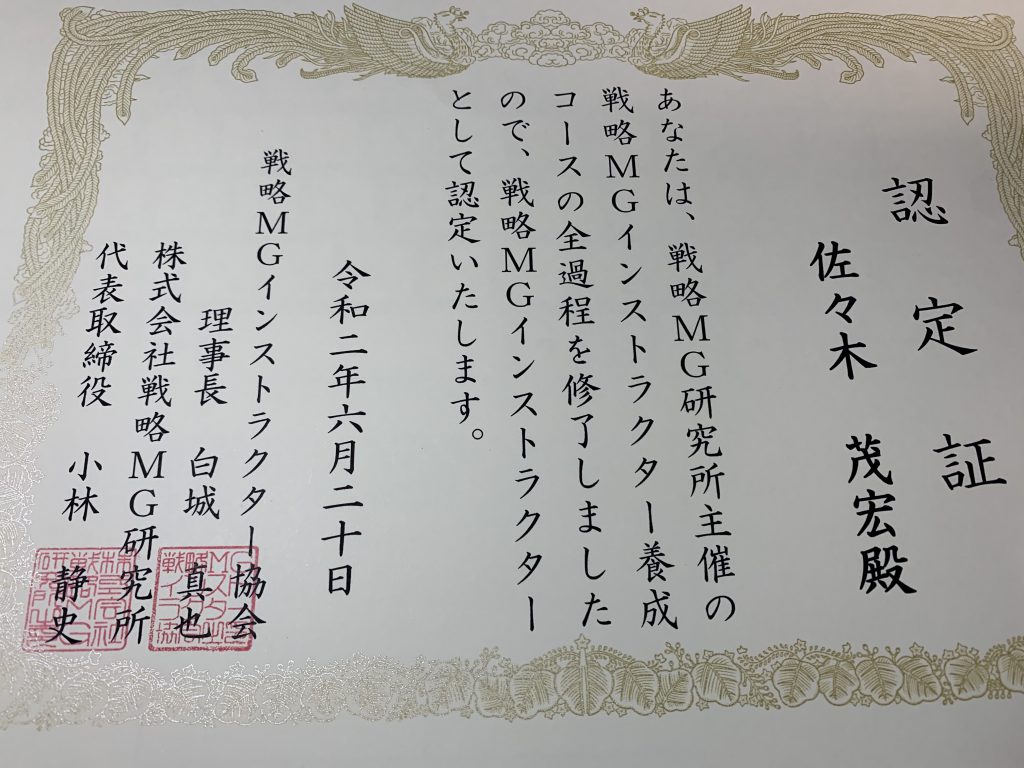 認定証
佐々木 茂宏殿
あなたは、戦略MG研究所主催の
戦略MGインストラクター養成
コースの全過程を修了しました
ので、戦略MGインストラクター
として認定いたします。
令和二年六月二十日
戦略MGインストラクター協会
理事長 白城 真也
株式会社戦略MG研究所
代表取締役 小林 静史